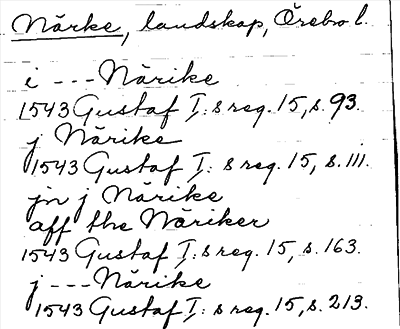 Närke, landskap, Örebro l.
i --- Närike
1543 Gustaf I:s reg. 15, s. 93.
j Närike
1543 Gustaf I: s reg. 15, s. 111.
jn j Närike
aff the Näriker
1543 Gustaf I:s reg. 15, s. 163.
j --- Närike
1543 Gustaf I: s reg. 15, s. 213.